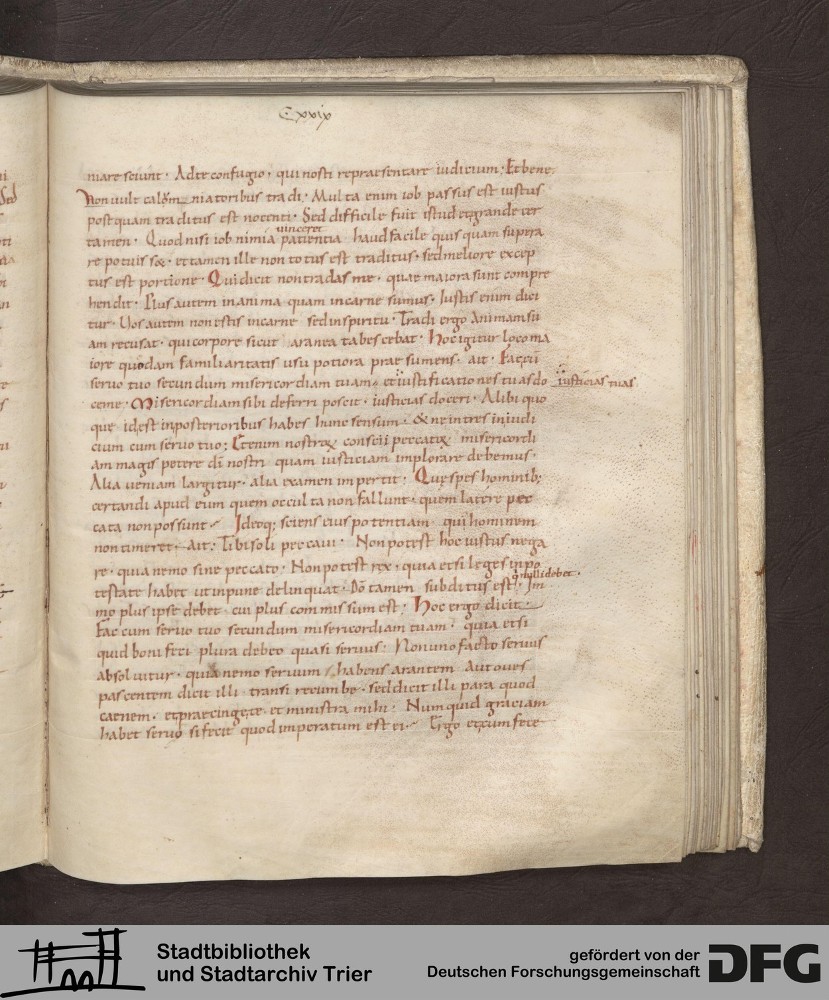 Cxxix
niare sciunt · Adte confugio · qui nosti repraesentare iudicium; Et bene
Non uult calumniatoribus tradi · Multa enim iob passus est iustus
postquam traditus est nocenti · Sed difficile fuit istud et grande cer
uinceret
tamen · Quod nisi iob nimia patientia haud facile quis quam supera
re potuisset · et tamen ille non totus est traditus · sed meliore excep
tus est portione · Qui dicit non tradas me · quae maiora sunt compre
hendit · Plus autem in anima quam in carne sumus · Iustis enim dici
tur · Uos autem non estis in carne sed in spiritu · Tradi ergo animam su
am recusat · qui corpore sicut aranea tabescebat · Hoc igitur loco ma
iore quodam familiaritatis usu potiora praesumens · ait · Fac cū
seruo tuo secundum misericordiam tuam · et iustificationes tuas do
iusticias tuas
ceme · Misericordiam sibi deferri poscit · iusticias doceri · Alibi quo
que id est in posterioribus habes hunc sensum · & ne intres in iudi
cium cum seruo tuo; Etenim nostrae conscii peccatis misericordi
am magis petere dī nostri quam iusticiam implorare debemus ·
Alia ueniam largitur · alia examen impertit; Que spes hominib;
certandi apud eum quem occulta non fallunt · quem latere pec
cata non possunt · Ideoq; sciens eius potentiam · qui hominem
non timeret · Ait; Tibi soli peccaui · Non potest hoc iustus nega
re · quia nemo sine peccato; Non potest rex · quia etsi leges in po
testate habet ut inpune delinquat · Dō tamen subditus est · Im
q̄ nulli debet ·
mo plus ipse debet · cui plus commissum est; Hoc ergo dicit ·
Fac cum seruo tuo secundum misericordiam tuam · quia etsi
quid boni feci plura debeo quasi seruus; Non uno facto seruus
absoluitur · quia nemo seruum habens arantem Aut oues
pascentem dicit illi transi recumbe · sed dicit illi para quod
caenem · et praecingete · et ministra mihi · Num quid graciam
habet seruo si fecit quod imperatum est ei · Ergo et cum fece
Stadtbibliothek
und Stadtarchiv Trier
gefördert von der
Deutschen Forschungsgemeinschaft
DFG